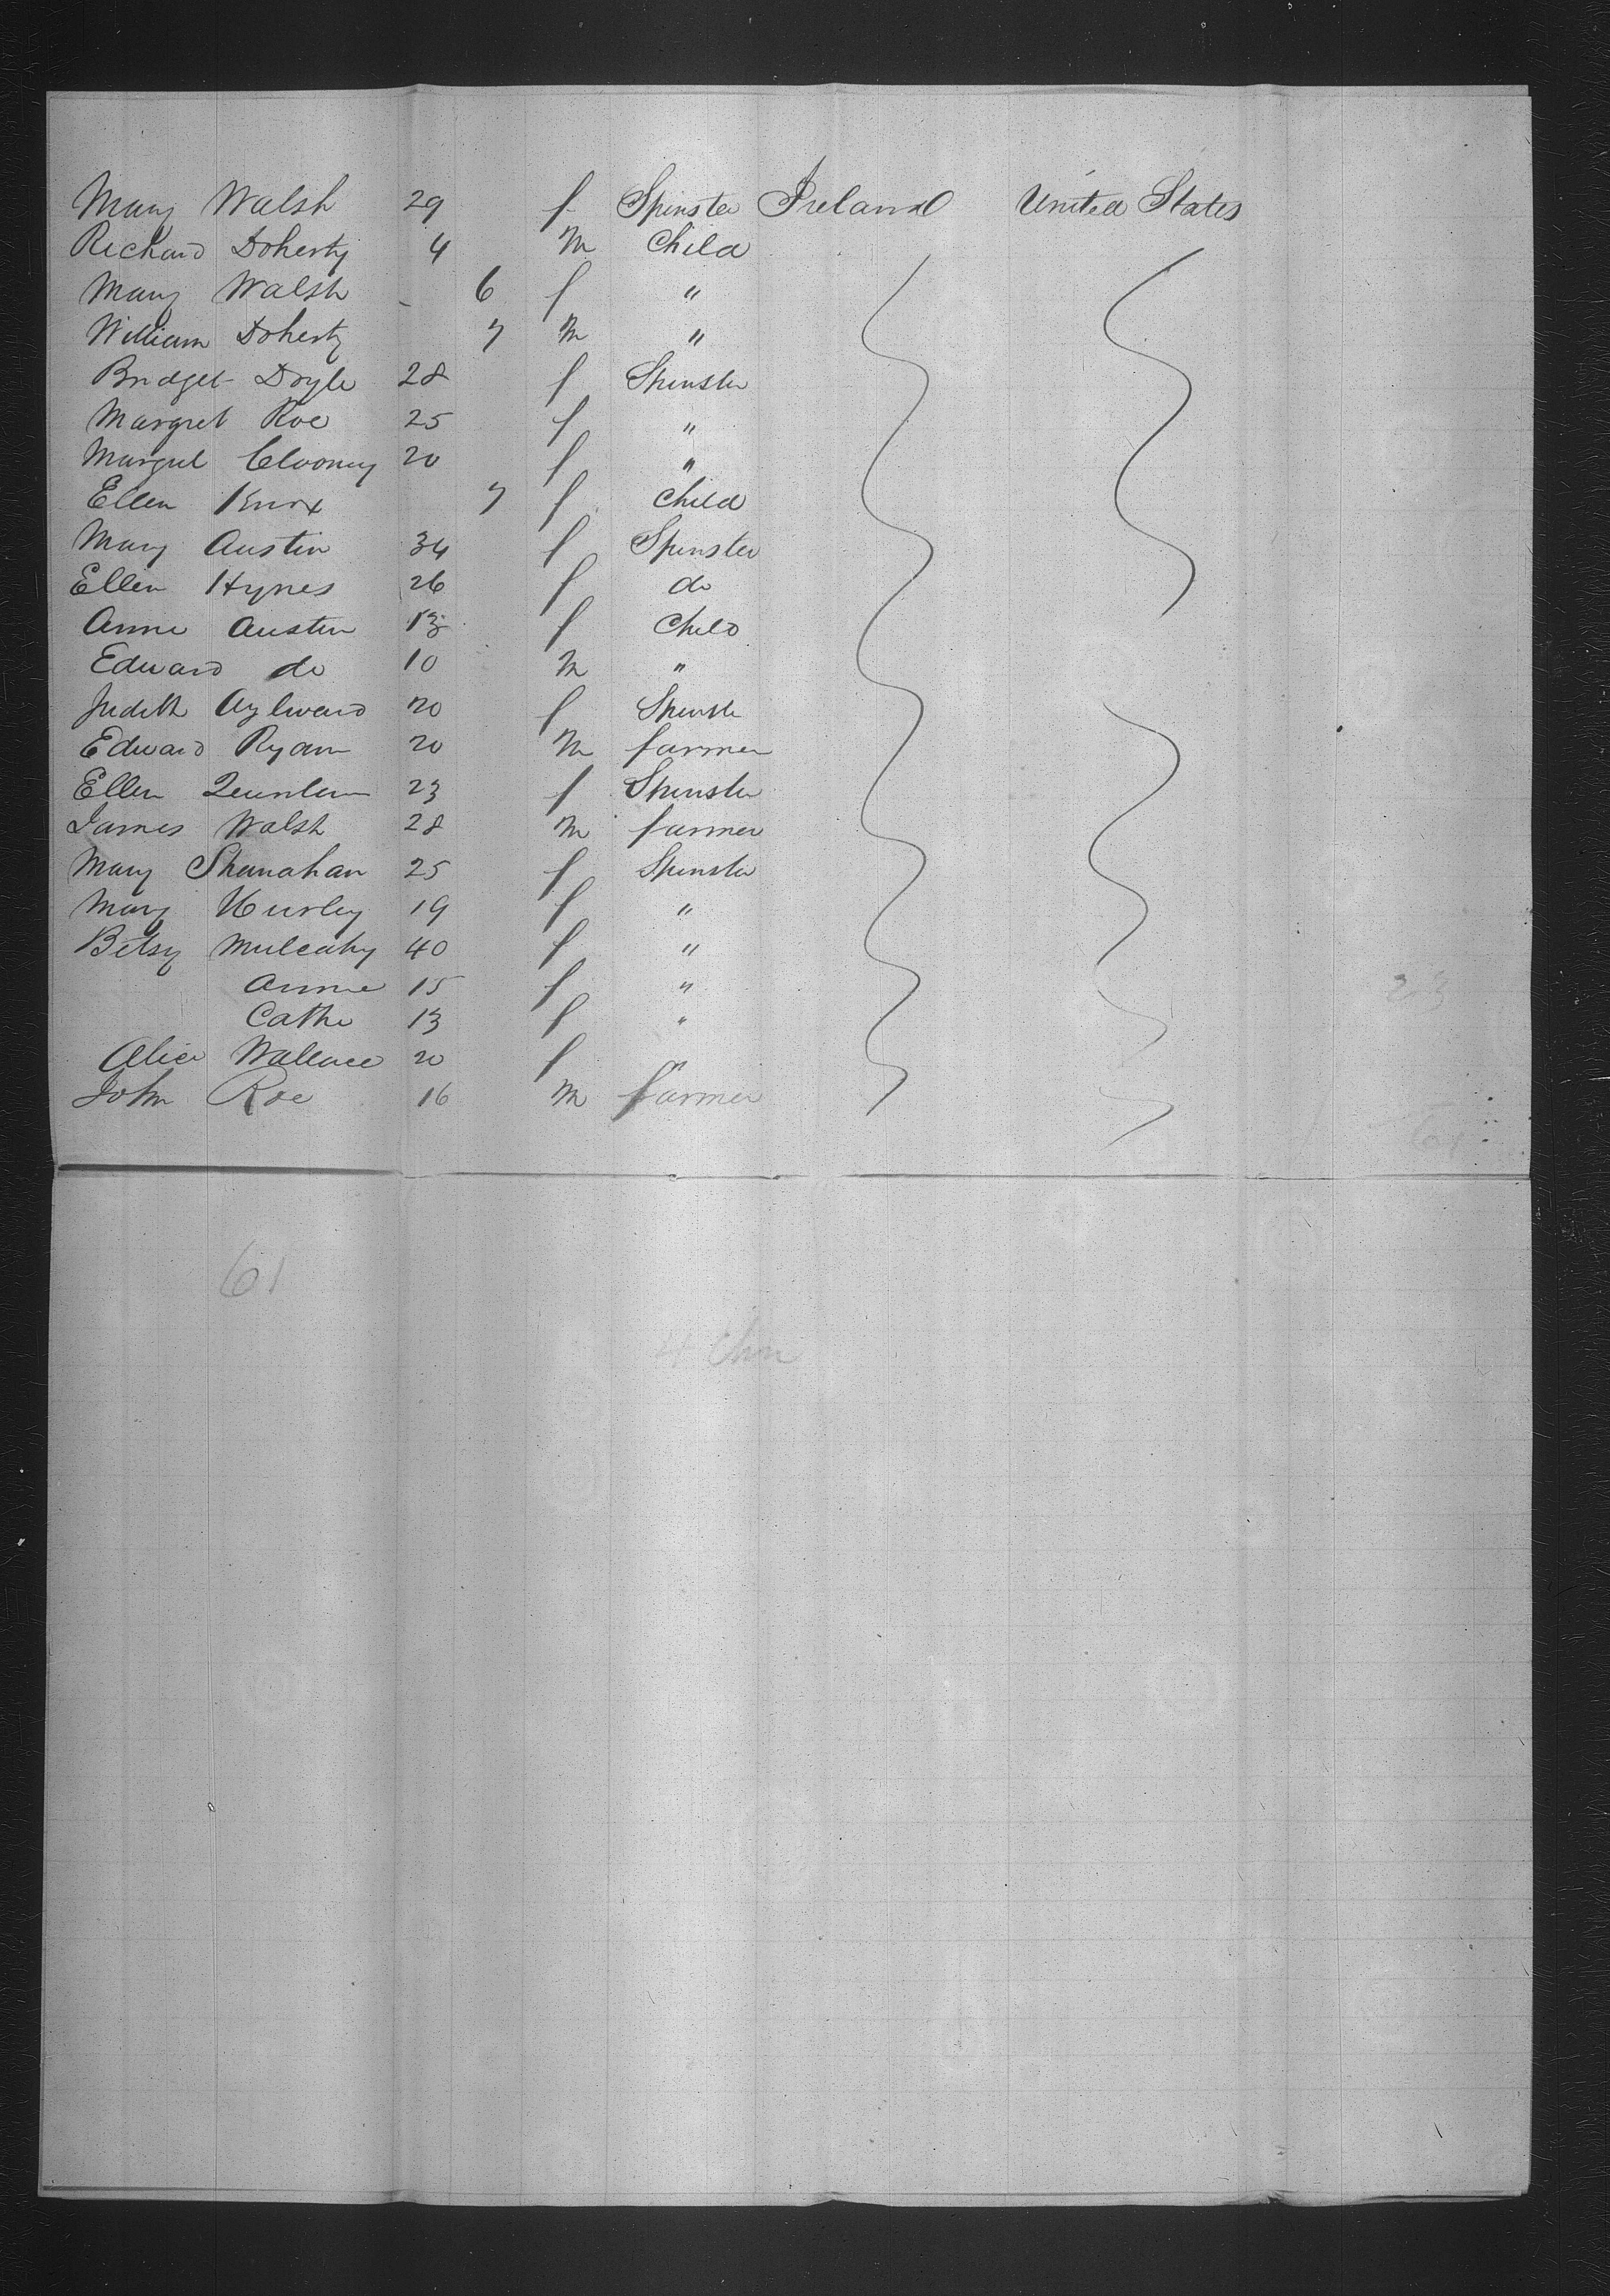 Mary Walsh 29 f Spinster Ireland United States
Richard Doherty 4 m Child
Mary Walsh - 6 f "
William Doherty 7 m "
Bridget Doyle 28 f Spinster
Margret Roe 25 f "
Margret Clooney 20 f "
Ellen Knox 7 f Child
Mary Austin 34 f Spinster
Ellen Hynes 26 f do
Anne Austin 13 f Child
Edward do 10 m "
Judith Aylward 20 f Spinster
Edward Ryan 20 m farmer
Ellen Quinlan 23 f Spinster
James Walsh 28 m farmer
Mary Shanahan 25 f Spinster
Mary Hurley 19 f "
Betsy Mulcahy 40 f "
Annie 15 f "
Cathe 13 f "
Alice Wallace 20 f "
John Roe 16 m farmer
23
61
61